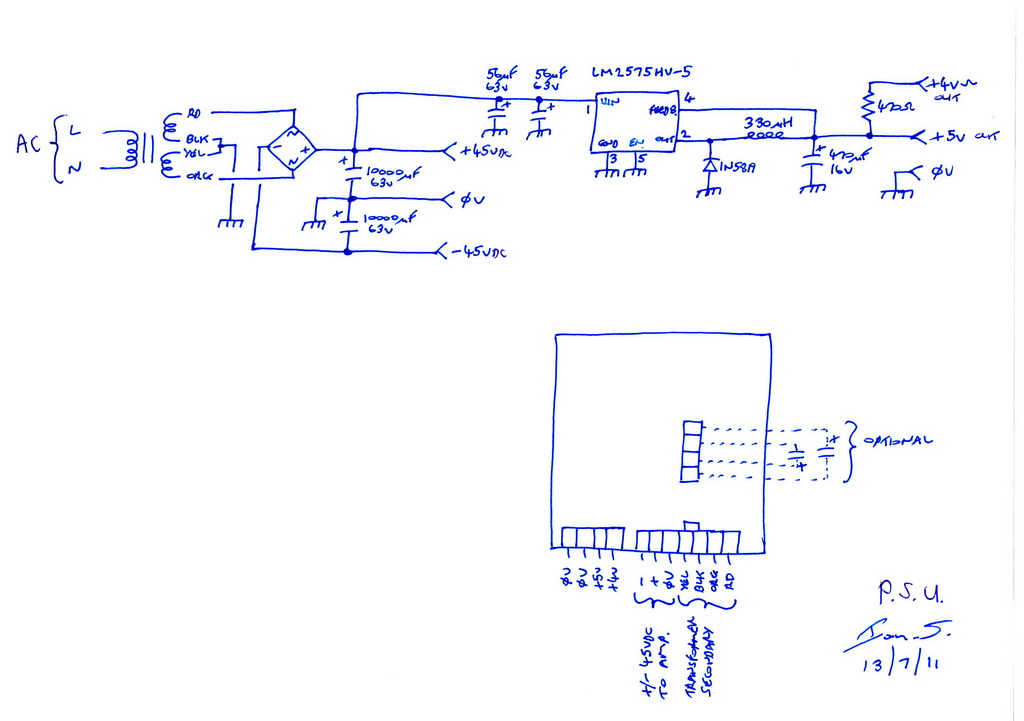 AC
L
N
RD
BLK
YEL
ORG
~
~
-
+
+45VDC
+
10000µF
63V
ØV
+
10000µF
63V
-45VDC
56µF
63V
+
56µF
63V
+
LM2575HV-5
1
VIN
FEEDB.
4
GND
EN
OUT
2
3
5
330µH
1N58A
+
470µF
16V
470Ω
+4V
OUT
+5V OUT
ØV
+
+
OPTIONAL
ØV
ØV
+5V
+4V
-
+
ØV
YEL
BLK
ORG
RD
+/- 45VDC
TO AMP.
TRANSFORMER
SECONDARY
P.S.U.
13/7/11